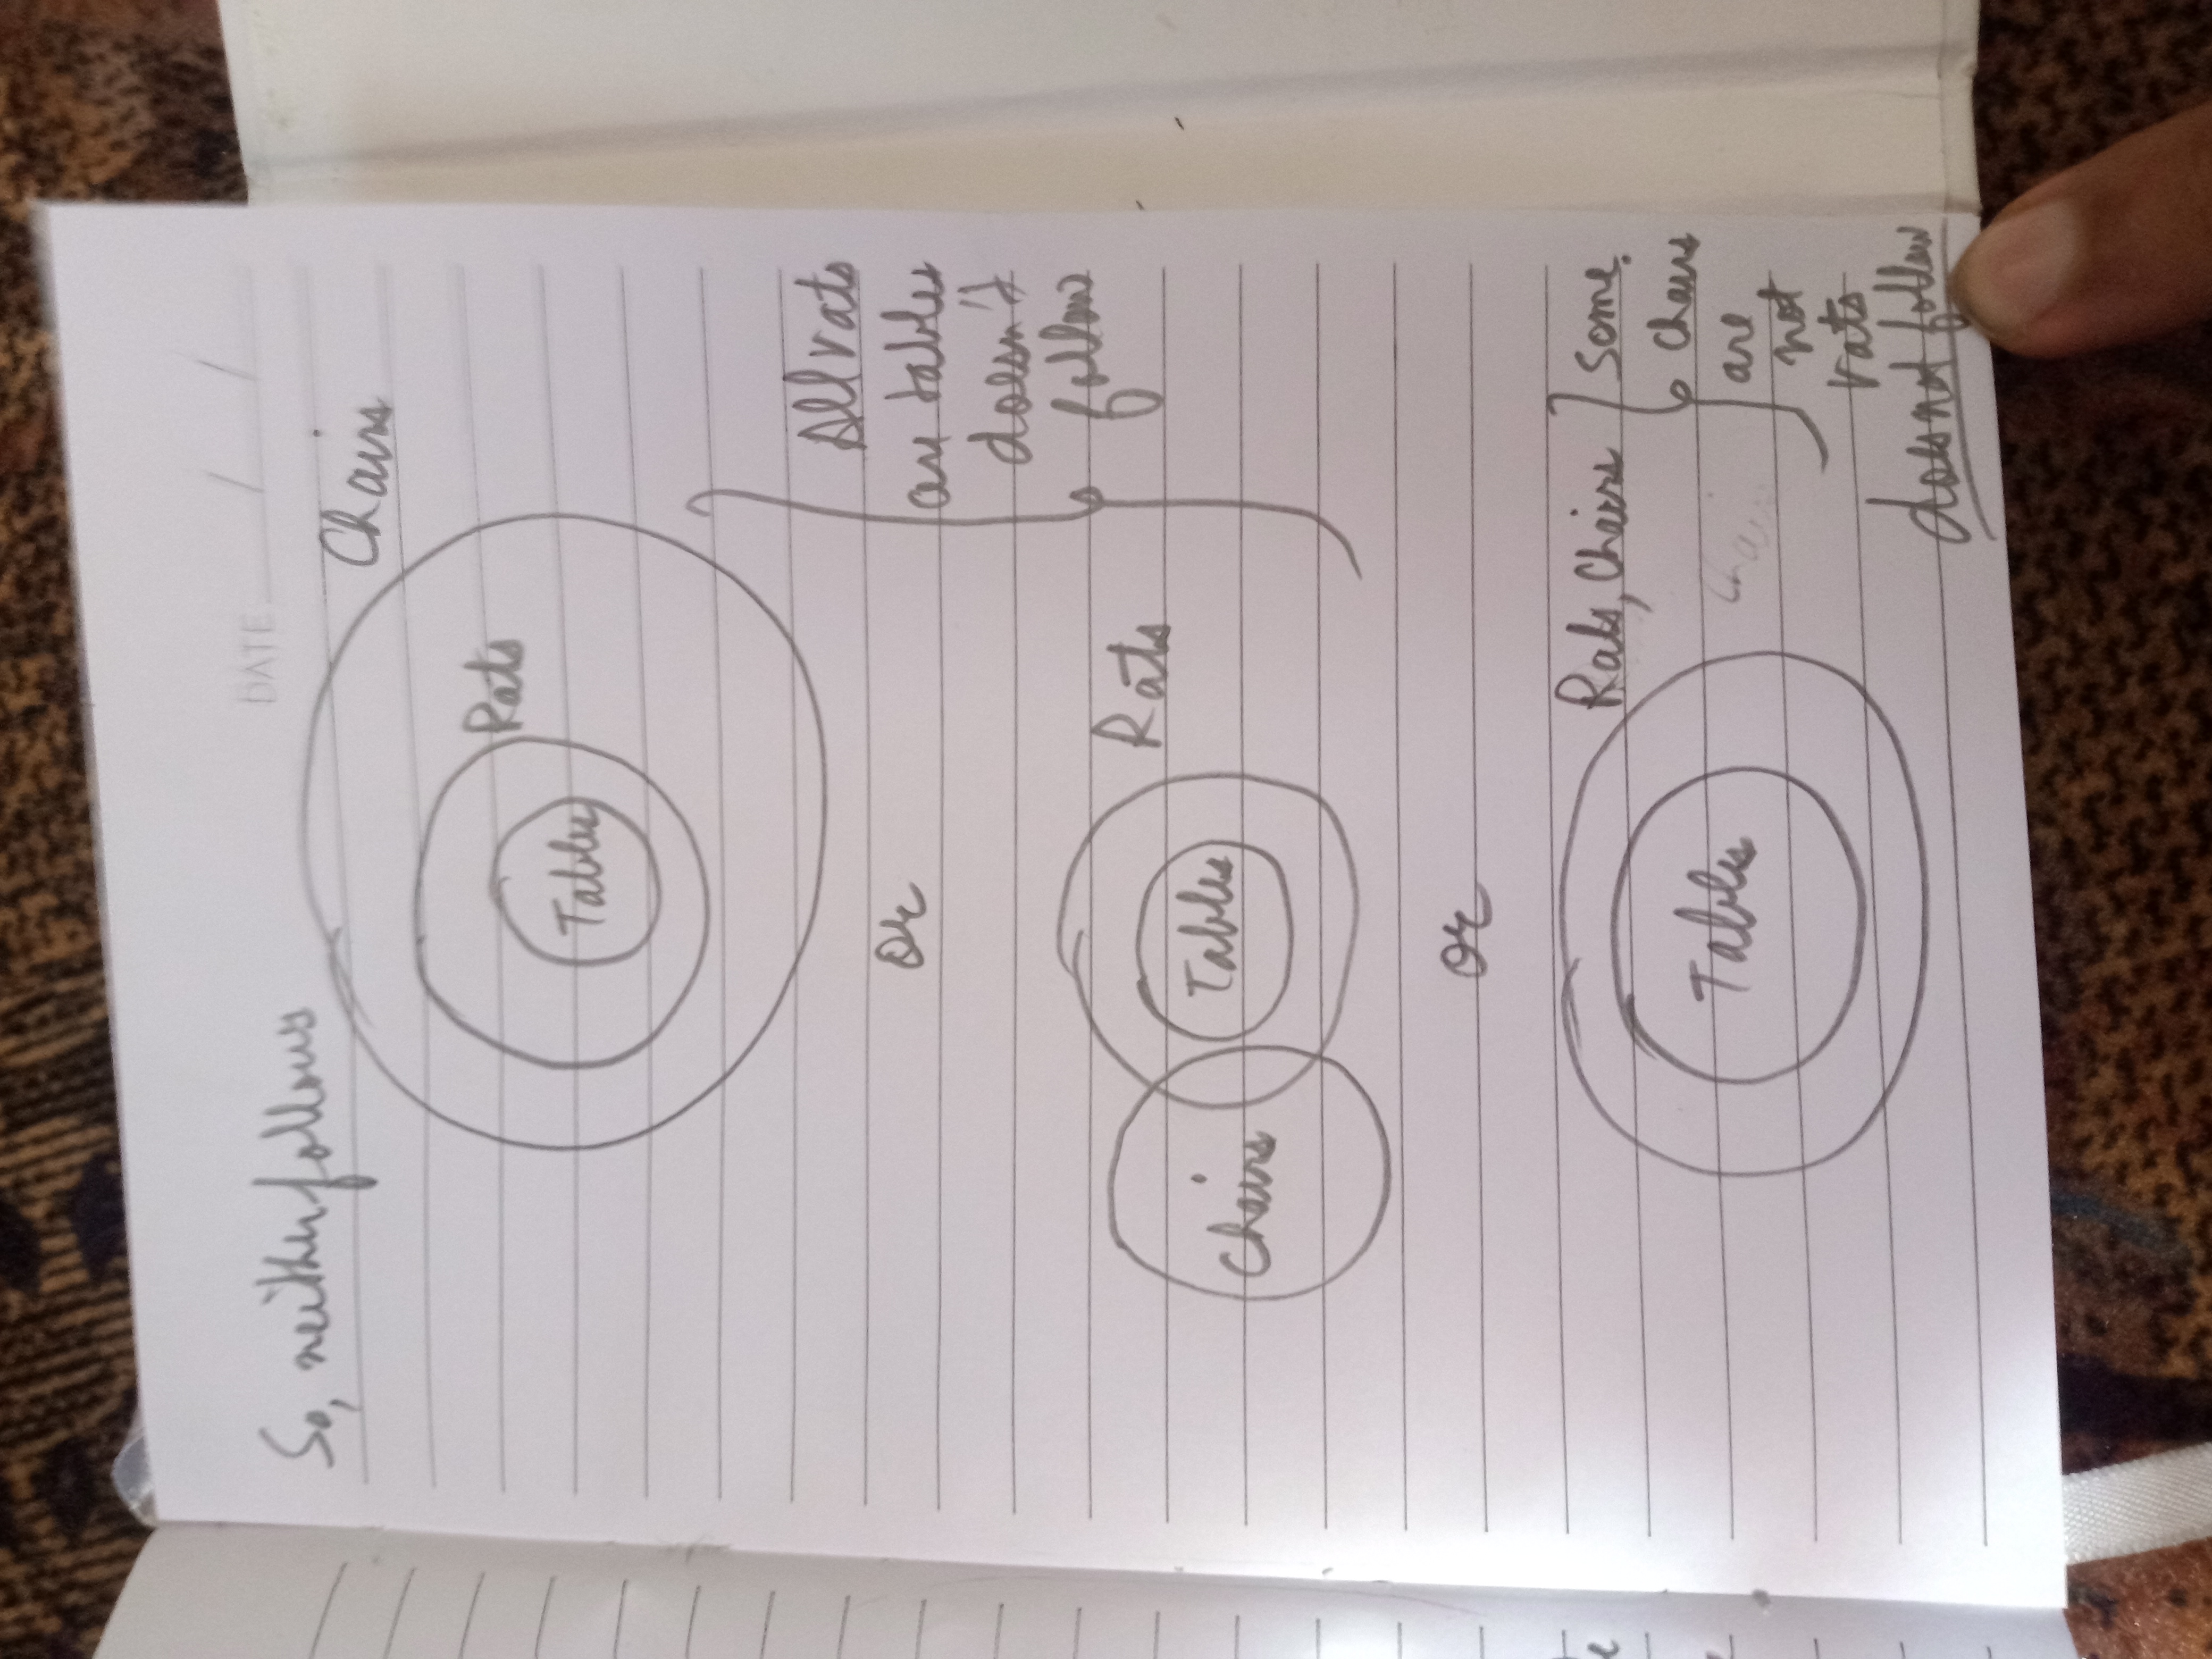 DATE
So, neither follows
Chairs
Rats
Tables
or
All rats
are tables
doesn't
follow
Rats
Tables
Chairs
or
Rats, Chairs
Tables
Some
chairs
are
not
rats
does not follow